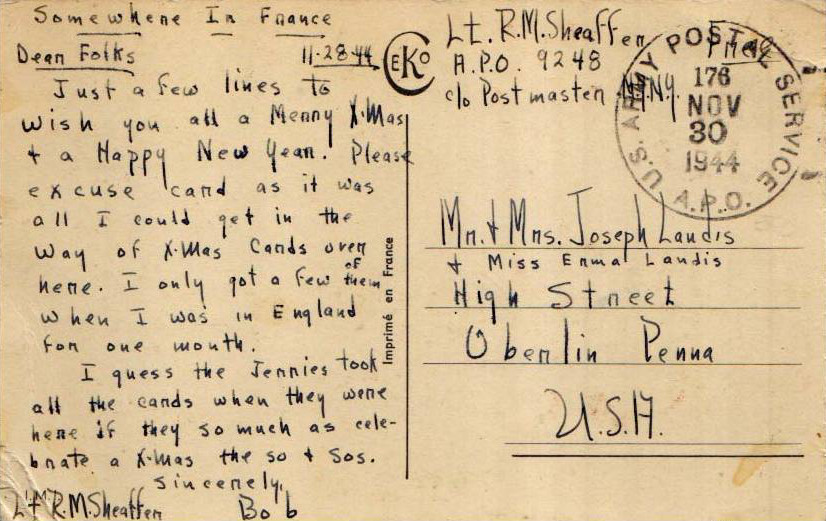 Somewhere In France
Dear Folks 11-28-44
Just a few lines to
wish you all a Merry X-Mas
+ a Happy New Year. Please
excuse card as it was
all I could get in the
way of X-Mas Cards over
here. I only got a few of them
when I was in England
for one month.
I guess the Jerries took
all the cards when they were
here if they so much as cele-
brate a X-Mas the so + sos.
Sincerely,
Bob
Lt R.M. Sheaffer
EKO
Imprimé en France
Lt. R.M. Sheaffer
A.P.O. 9248
c/o Postmaster N.Y. N.Y.
Free
U.S. ARMY POSTAL SERVICE
176
NOV
30
1944
A.P.O.
Mr. + Mrs. Joseph Landis
+ Miss Erma Landis
High Street
Oberlin Penna
U.S.A.